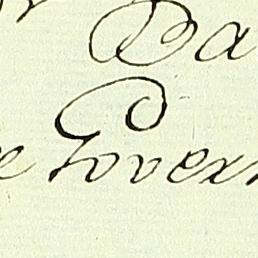 Da
e Govern